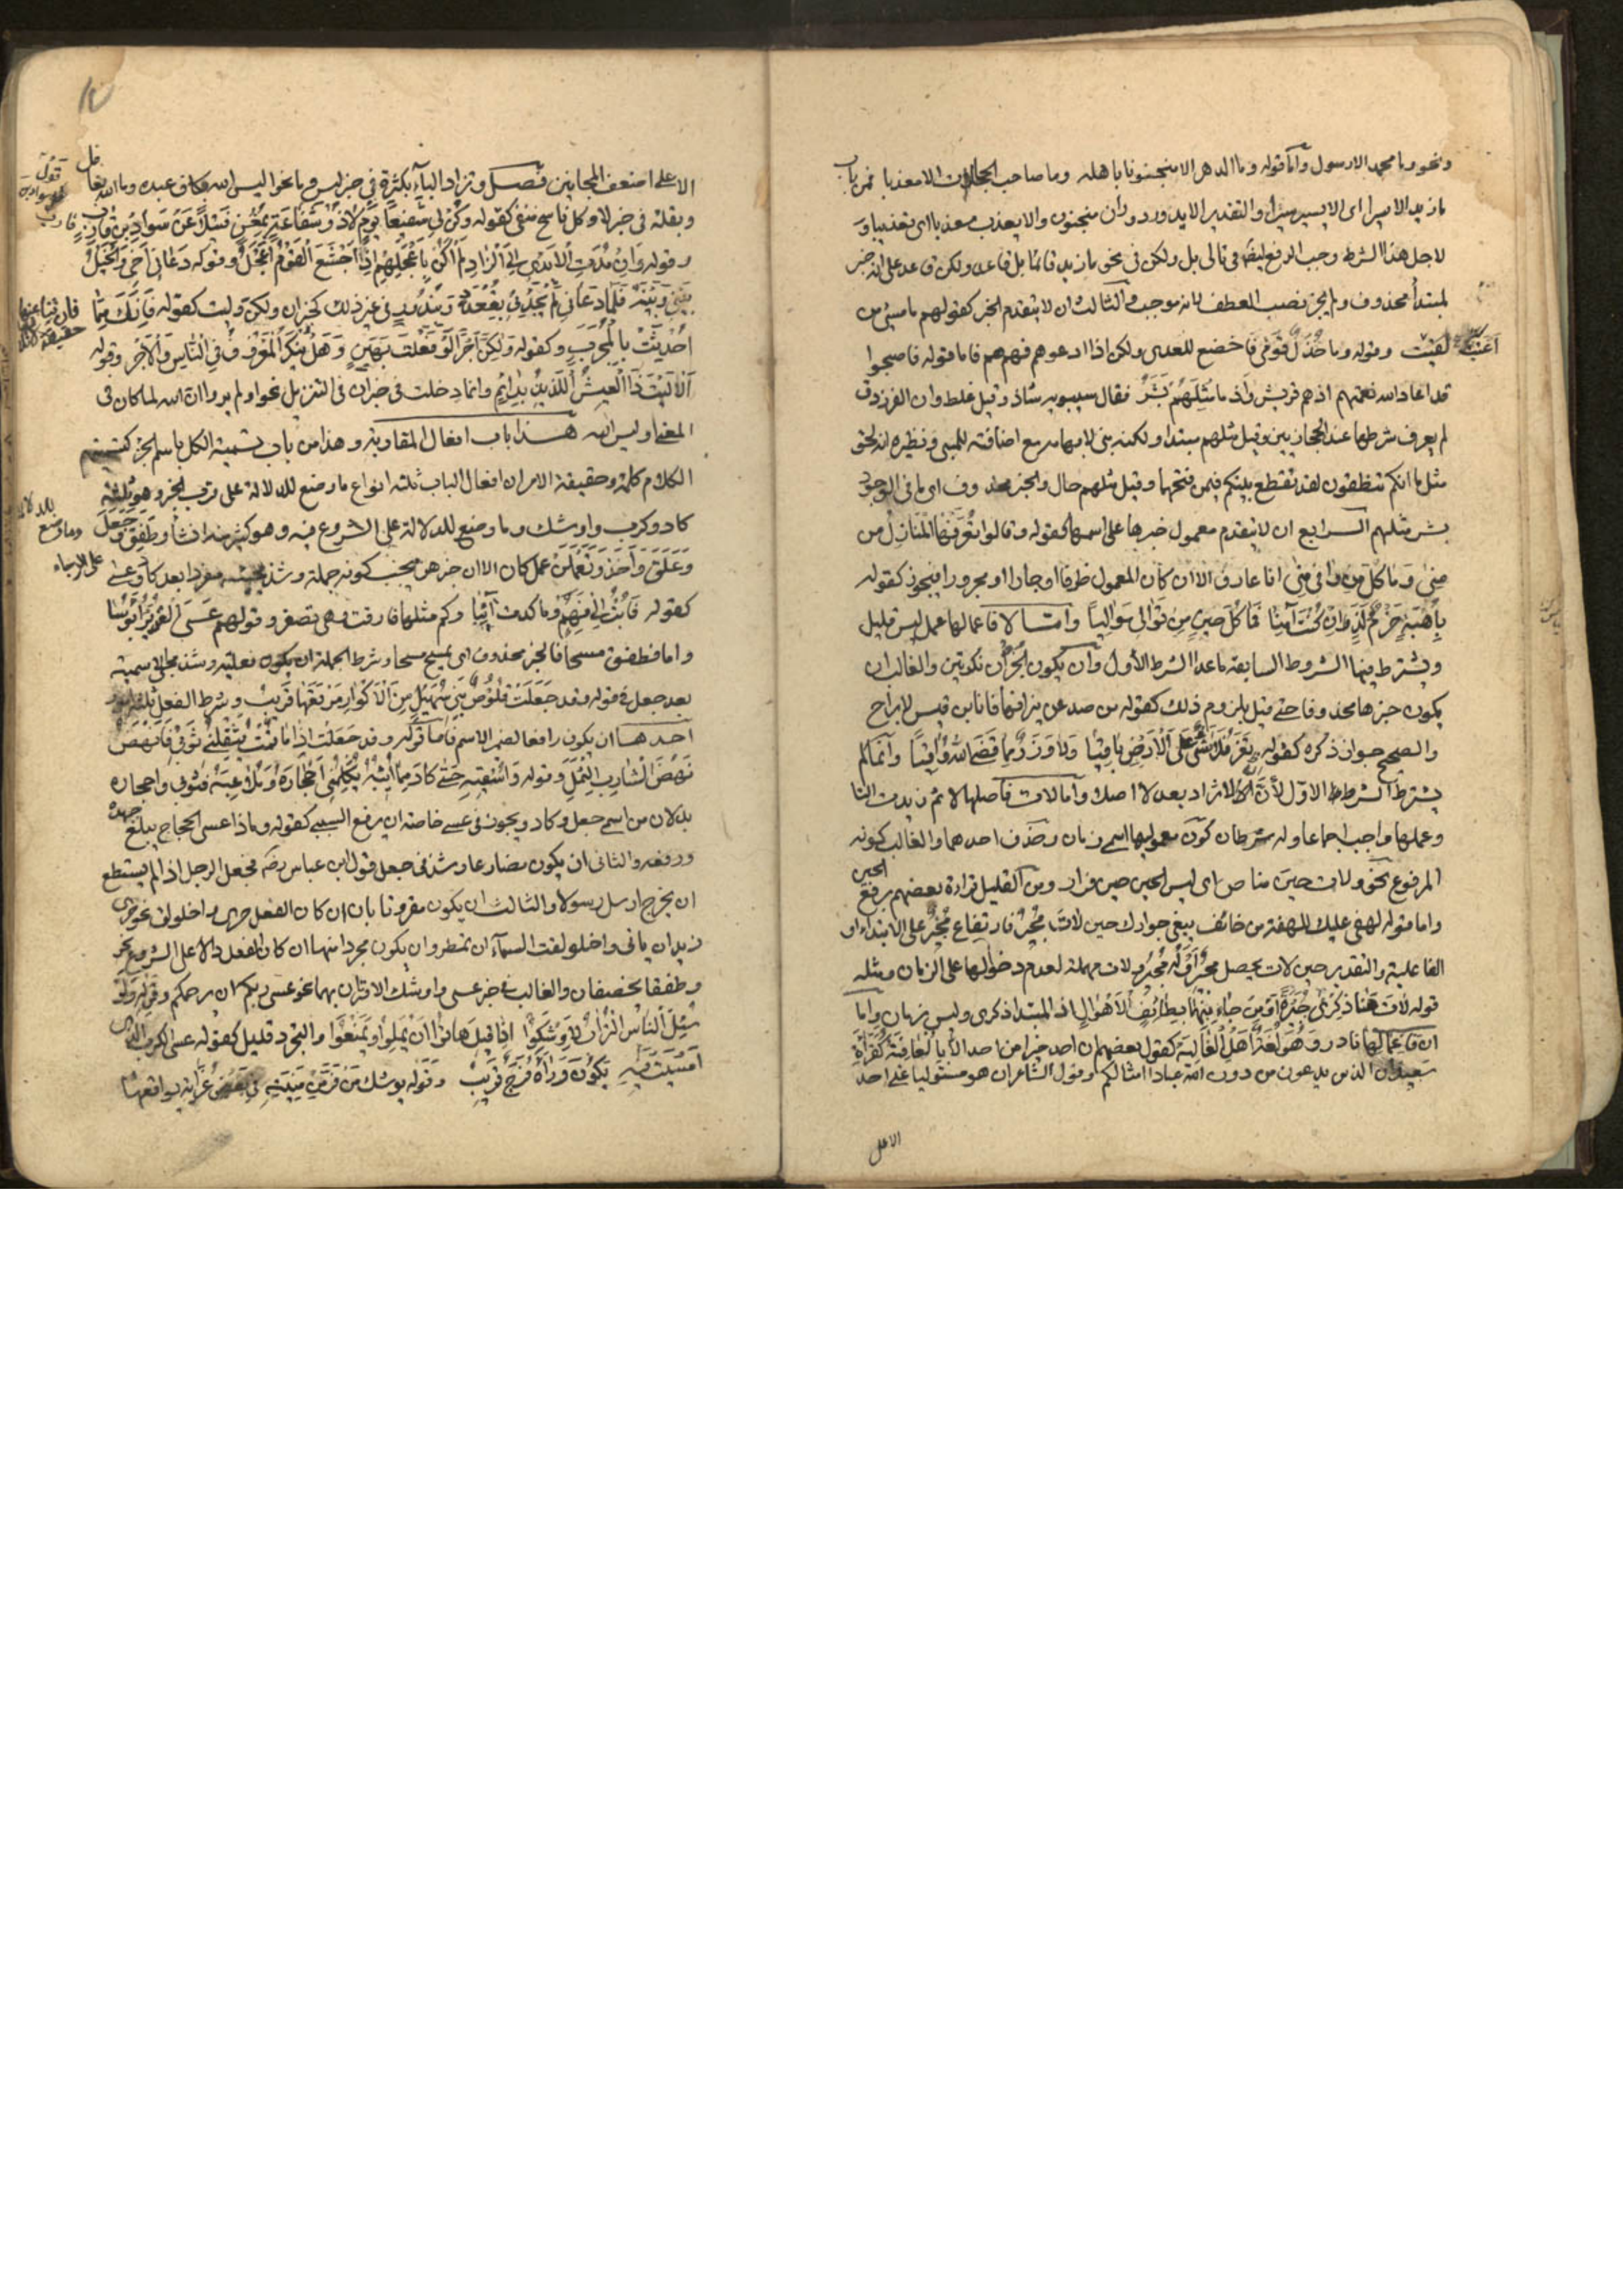 ونحو وما محمد الا رسول واما قوله وما الدهر الا منجنونا باهله وما صاحب الحاجات الا معذبا فمن باب
ما زيد الا سيرا اى الا يسير سيرا والتقدير الا يدور دوران منجنون والا يعذب معذبا اى تعذيبا و
لاجل هذا الشرط وجب الرفع ايضا فى تالى بل ولكن فى نحو ما زيد قائما بل قاعد ولكن قاعد على انه خبر
لمبتدأ محذوف ولم يجز نصب العطف لانه موجب والثالث ان لا يتقدم الخبر كقولهم ما مسىء من
اعتب وقوله وما خذل قومى فاخضع للعدى ولكن اذا ادعوهم فهم هم فاما قوله فاصبحوا
قد اعاد الله نعمتهم اذ هم قريش واذ ما مثلهم بشر فقال سيبويه شاذ وقيل غلط وان الفرزدق
لم يعرف شرطها عند الحجازيين وقيل مثلهم مبتدا ولكنه بنى لابهامه مع اضافته للمبنى ونظيره انه لحق
مثل ما انكم تنطقون لقد تقطع بينكم فيمن فتحهما وقيل مثلهم حال والخبر محذوف اى ما فى الوجود
بشر مثلهم الرابع ان لا يتقدم معمول خبرها على اسمها كقوله وقالوا تعرفها المنازل من
منى وما كل من وافى منى انا عارف الا ان كان المعمول ظرفا او جارا او مجرورا فيجوز كقوله
باهبة حزم لذ وان كنت آمنا فما كل حين من توالى مواليا واما لا فاعمالها عمل ليس قليل
ويشترط فيها الشروط السابقة ما عدا الشرط الاول وان يكون الجزآن نكرتين والغالب ان
يكون خبرها محذوفا حتى قيل بلزوم ذلك كقوله من صد عن نيرانها فانا ابن قيس لا براح
والصحيح جواز ذكره كقوله تعز فلا شىء على الارض باقيا ولا وزر مما قضى الله واقيا وانما لم
يشترط الشرط الاول لان ان لا تزاد بعد لا اصلا واما لات فاصلها لا ثم زيدت التا
وعملها واجب اجماعا وله شرطان كون معموليها اسمى زمان وحذف احدهما والغالب كونه
المرفوع نحو ولات حين مناص اى ليس الحين حين فرار ومن القليل قراءة بعضهم برفع الحين
واما قوله لهفى عليك للهفة من خائف يبغى جوارك حين لات مجير فارتفاع مجير على الابتداء او
الفاعلية والتقدير حين لات يحصل مجير او له مجير ولات مهملة لعدم دخولها على الزمان ومثله
قوله لات هنا ذكرى جبيرة او من جاء منها بطائف الاهوال اذ المبتدا ذكرى وليس بزمان واما
ان فاعمالها نادر وهو لغة اهل العالية كقول بعضهم ان احد خيرا من احد الا بالعافية كقراءة
سعيد ان الذين تدعون من دون الله عبادا امثالكم وقول الشاعر ان هو مستوليا على احد
الا على
الا على اضعف المجانين فصل وتزاد الباء بكثرة فى خبر ليس وما نحو اليس الله بكاف عبده وما الله بغافل
وبقلة فى خبر لا وكل ناسخ منفى كقوله وكن لى شفيعا يوم لا ذو شفاعة بمغن فتيلا عن سواد بن قارب
وقوله وان مدت الايدى الى الزاد لم اكن باعجلهم اذ اجشع القوم اعجل وقوله دعانى اخى والخيل
بينى وبينه فلما دعانى لم يجدنى بقعدد ويندر فى غير ذلك كخبر ان ولكن وليت كقوله فانك مما
احدثت بالمجرب وكقوله ولكن اجرا لو فعلت بهين وهل ينكر المعروف فى الناس والاجر وقوله
الا ليت ذا العيش اللذيذ بدائم وانما دخلت فى خبر ان فى التنزيل نحو اولم يروا ان الله لما كان فى
المعنى اوليس الله هذا باب افعال المقاربة وهذا من باب تسمية الكل باسم الجزء كتسميتهم
الكلام كلمة وحقيقة الامر ان افعال الباب ثلثة انواع ما وضع للدلالة على قرب الخبر وهو ثلثة
كاد وكرب واوشك وما وضع للدلالة على الشروع فيه وهو كثير منه انشأ وطفق وجعل
وعلق واخذ وتعملن عمل كان الا ان خبرهن يجب كونه جملة وشذ مجيئه مفردا بعد كاد وعسى
كقوله فابت الى فهم وما كدت آئبا وكم مثلها فارقت وهى تصفر وقولهم عسى الغوير ابؤسا
واما فطفق مسحا فالخبر محذوف اى يمسح مسحا وشرط الجملة ان يكون فعلية وشذ مجىء الاسمية
بعد جعل فى قوله وقد جعلت قلوص بنى سهيل من الاكوار مرتعها قريب وشرط الفعل ثلثة امور
احدها ان يكون رافعا لضمير الاسم فاما قوله وقد جعلت اذا ما قمت يثقلنى ثوبى فانهض
نهض الشارب الثمل وقوله واسقيه حتى كاد مما ابثه تكلمنى احجاره وملاعبه فثوبى واحجاره
بدلان من اسم جعل وكاد ويجوز فى عسى خاصة ان يرفع السببى كقوله وماذا عسى الحجاج يبلغ جهده
ورفعه والثانى ان يكون مضارعا وشذ فى جعل قول ابن عباس رضه فجعل الرجل اذا لم يستطع
ان يخرج ارسل رسولا والثالث ان يكون مقرونا بان ان كان الفعل حرى واخلولق نحو حرى
زيد ان ياتى واخلولقت السماء ان تمطر وان يكون مجردا منها ان كان الفعل دالا على الشروع نحو
وطفقا يخصفان والغالب فى خبر عسى واوشك الاقتران بها نحو عسى ربكم ان يرحمكم وقوله ولو
سئل الناس التراب لاوشكوا اذا قيل هاتوا ان يملوا ويمنعوا والتجرد قليل كقوله عسى الكرب الذى
امسيت فيه يكون وراءه فرج قريب وقوله يوشك من فر من منيته فى بعض غراته يوافقها